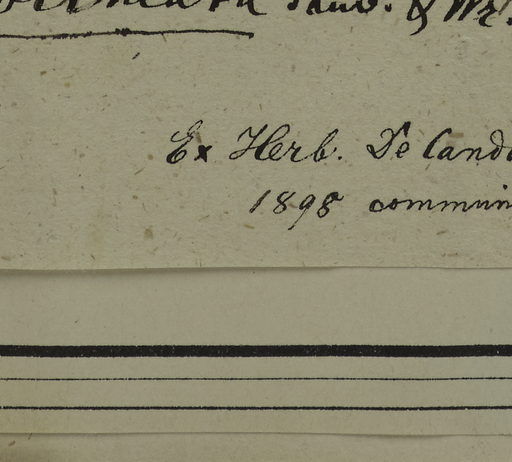 Jaub. & 
Ex Herb. De Cand
1898 commun